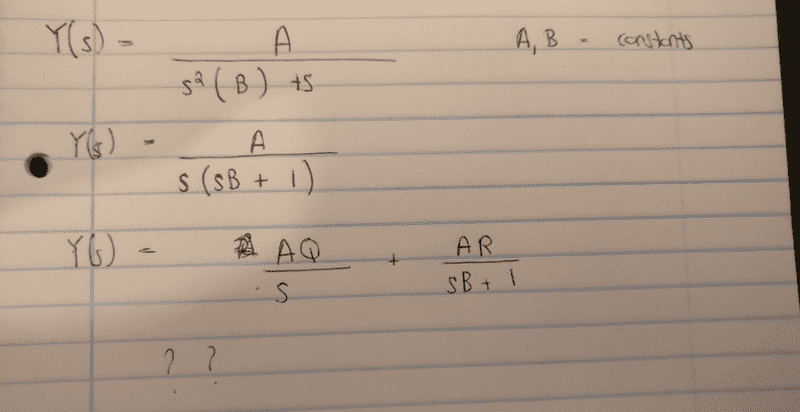 Y(s) = A / (s²(B) + s)    A, B - constants
Y(s) = A / (s(sB + 1))
Y(s) = AQ / s + AR / (sB + 1)
? ?